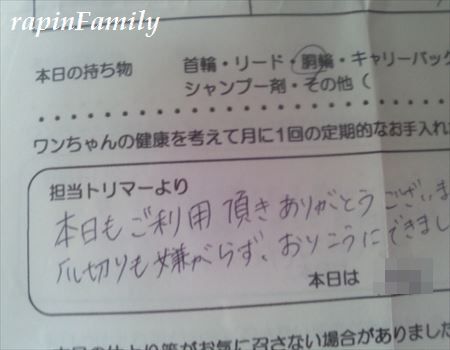 rapinFamily
本日の持ち物 首輪・リード・胴輪・キャリーバック
シャンプー剤・その他（
ワンちゃんの健康を考えて月に1回の定期的なお手入れ
担当トリマーより
本日もご利用頂きありがとうございま
爪切りも嫌がらず、おりこうにできまし
本日は
がお気に召さない場合がありました